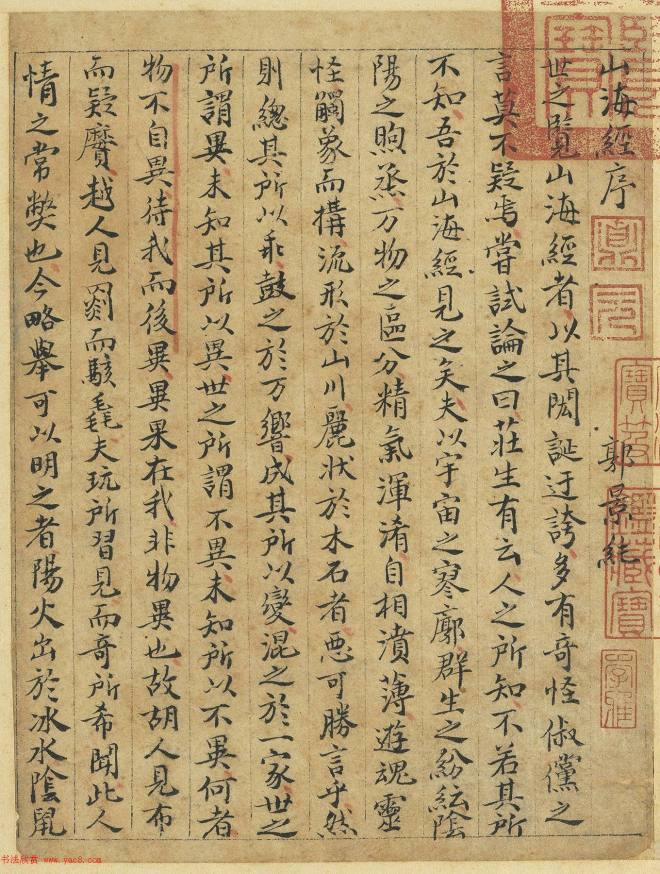 山海經序 郭景純
世之覽山海經者以其閎誕迂誇多有奇怪俶儻之
言莫不疑焉嘗試論之曰莊生有云人之所知不若其所
不知吾於山海經見之矣夫以宇宙之寥廓群生之紛紜陰
陽之煦蒸万物之區分精氣渾淆自相濆薄遊魂靈
怪觸象而構流形於山川麗狀於木石者惡可勝言乎然
則總其所以乖鼓之於万響成其所以變混之於一家世之
所謂異未知其所以異世之所謂不異未知所以不異何者
物不自異待我而後異異果在我非物異也故胡人見布
而疑黂越人見罽而駭毳夫玩所習見而奇所希聞此人
情之常弊也今略舉可以明之者陽火出於冰水陰鼠
书法欣赏 www.yac8.com